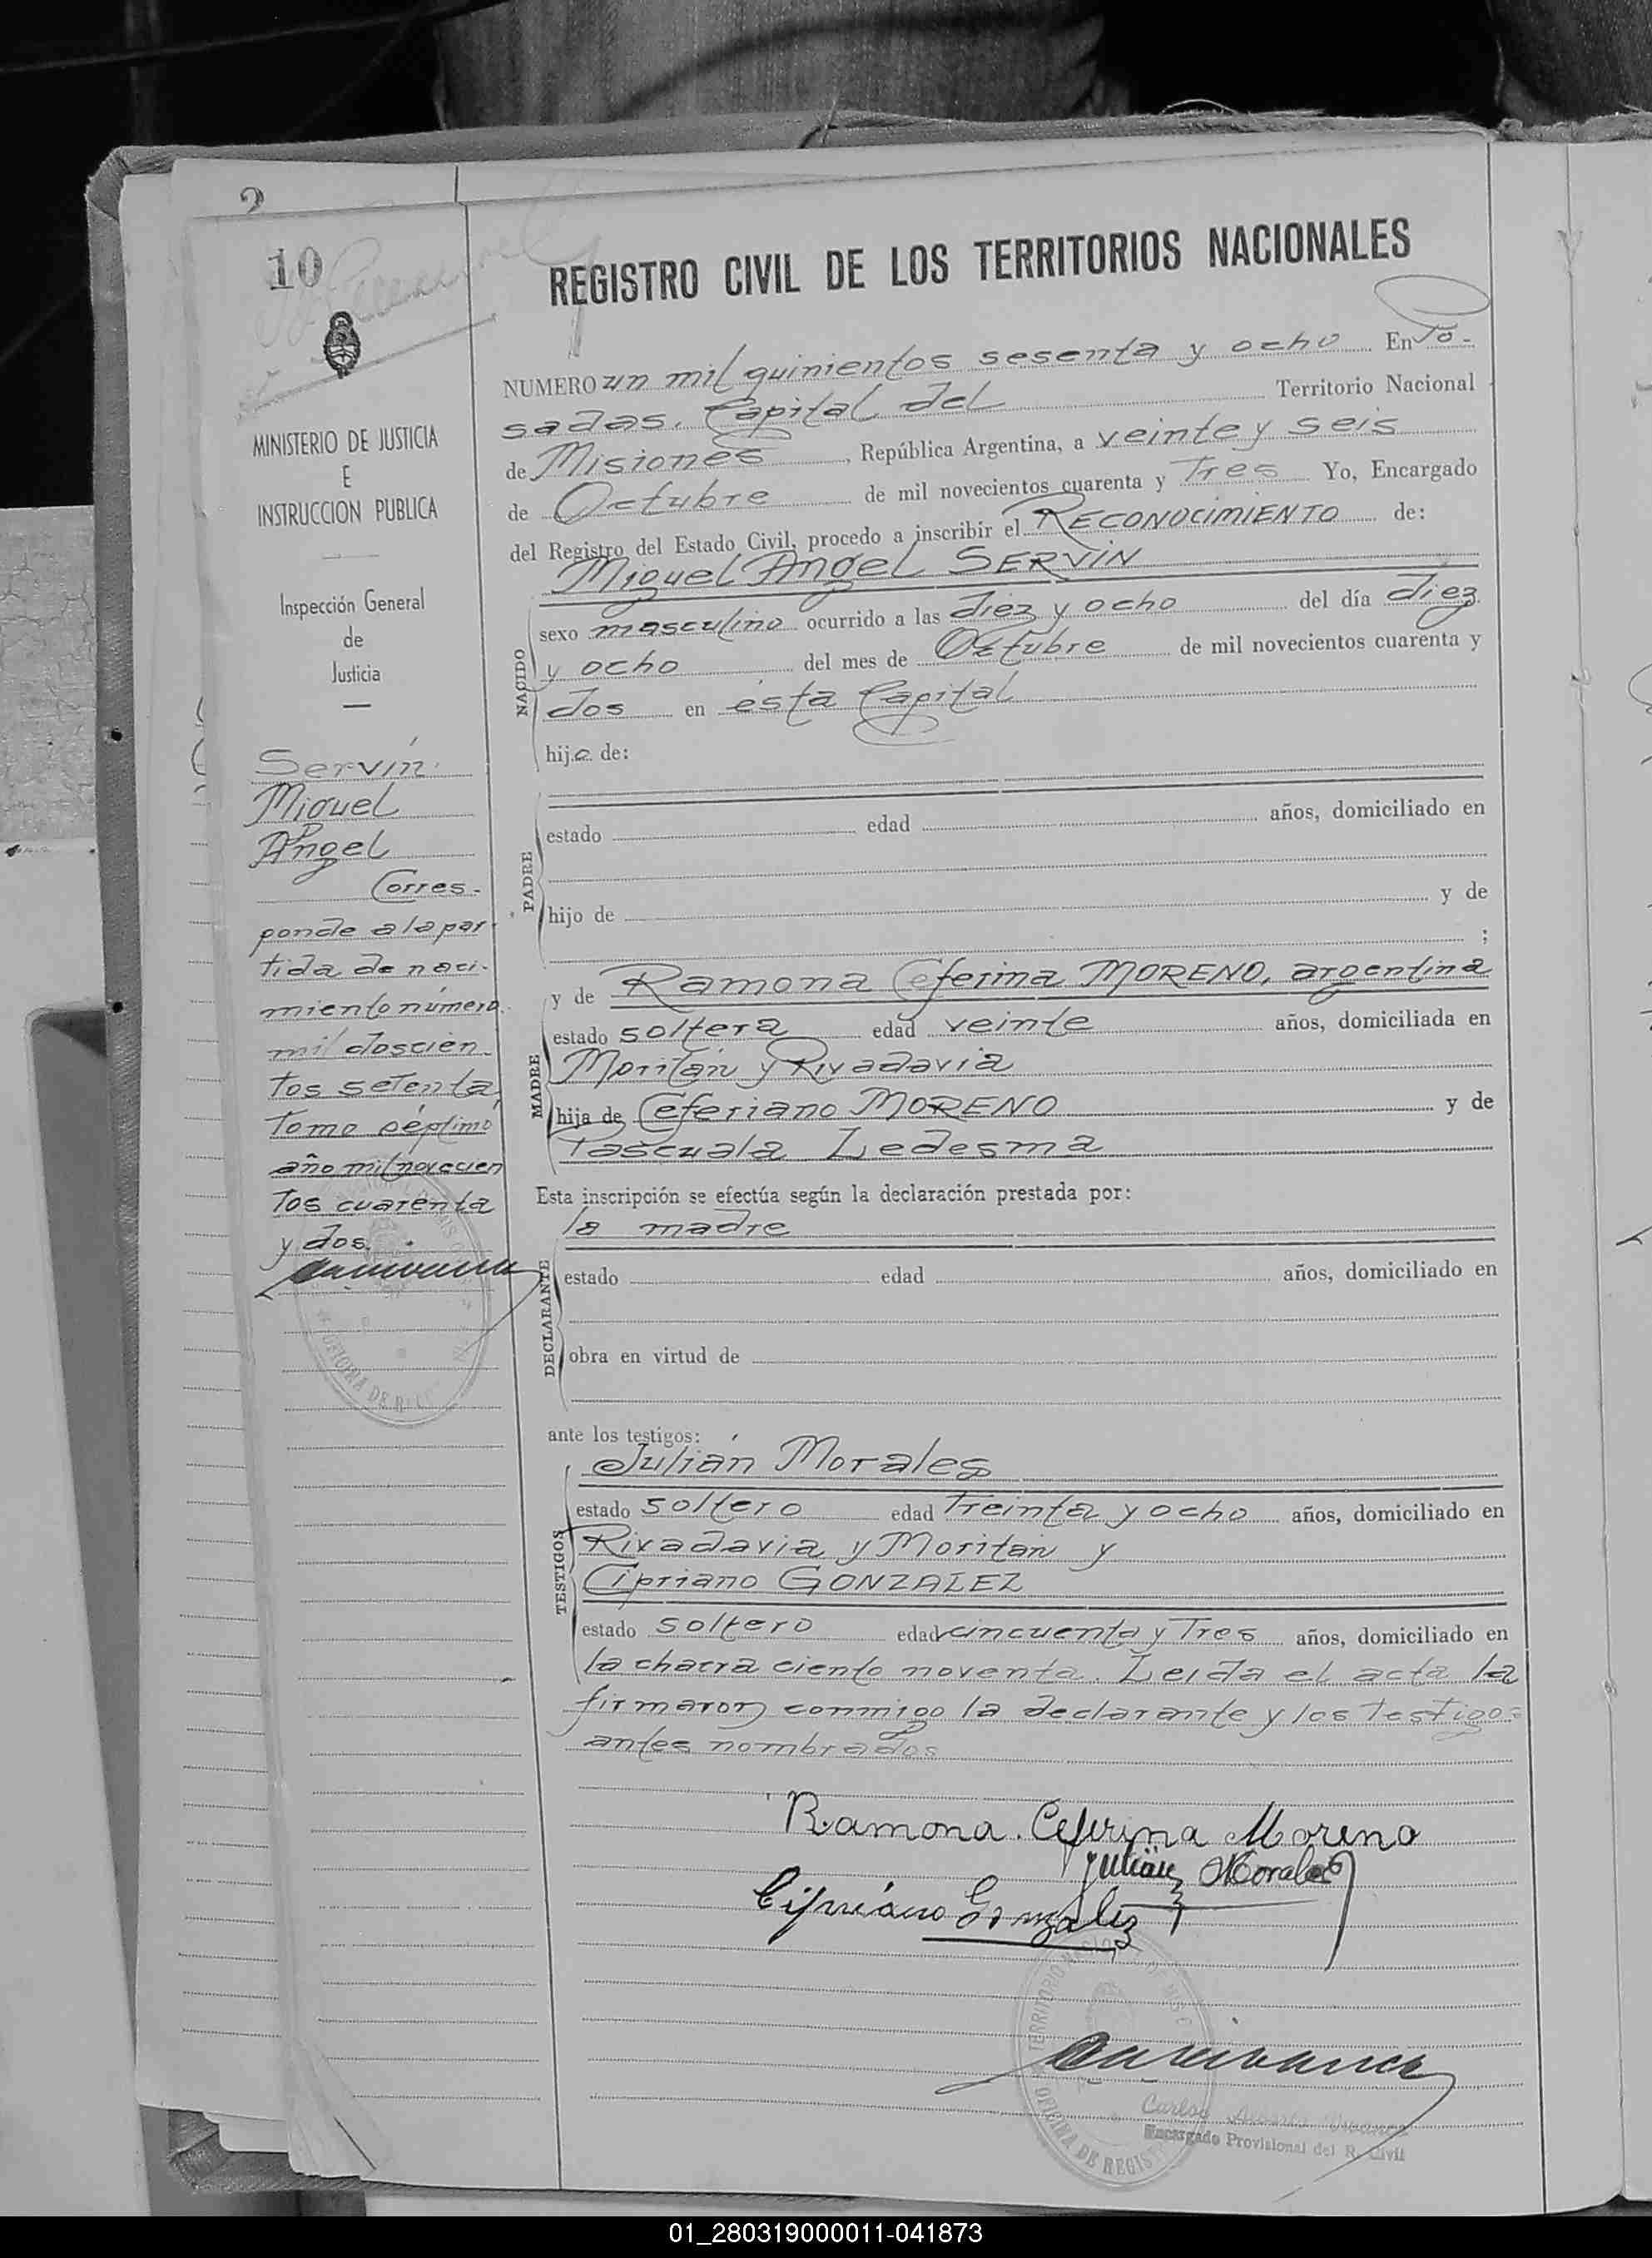 2
10
REGISTRO CIVIL DE LOS TERRITORIOS NACIONALES
MINISTERIO DE JUSTICIA
E
INSTRUCCION PUBLICA
Inspección General
de
Justicia
Servín
Miguel
Angel
Corres-
ponde a la par-
tida de naci-
miento número
mil doscien-
tos setenta,
Tomo séptimo
año mil novecien
tos cuarenta
y dos.
NUMERO un mil quinientos sesenta y ocho En Po-
sadas, Capital del Territorio Nacional
de Misiones, República Argentina, a veinte y seis
de Octubre de mil novecientos cuarenta y Tres Yo, Encargado
del Registro del Estado Civil, procedo a inscribir el RECONOCIMIENTO de:
Miguel Angel SERVIN
NACIDO
sexo masculino ocurrido a las diez y ocho del día diez
y ocho del mes de Octubre de mil novecientos cuarenta y
dos en ésta Capital
hijo de:
PADRE
estado edad años, domiciliado en
hijo de y de
;
y de Ramona Ceferina MORENO, argentina
MADRE
estado soltera edad veinte años, domiciliada en
Moritán y Rivadavia
hija de Ceferiano MORENO y de
Pascuala Ledesma
Esta inscripción se efectúa según la declaración prestada por:
la madre
DECLARANTE
estado edad años, domiciliado en
obra en virtud de
ante los testigos:
Julián Morales
TESTIGOS
estado soltero edad Treinta y ocho años, domiciliado en
Rivadavia y Moritan y
Cipriano GONZALEZ
estado soltero edad cincuenta y Tres años, domiciliado en
la chacra ciento noventa. Leida el acta la
firmaron conmigo la declarante y los testigos
antes nombrados
Ramona. Ceferina Moreno
Julián Morales
Cipriano Gonzalez
TERRITORIO
OFICINA DE REGIS
Carlos Alberto
Encargado Provisional del R. Civil
01_280319000011-041873